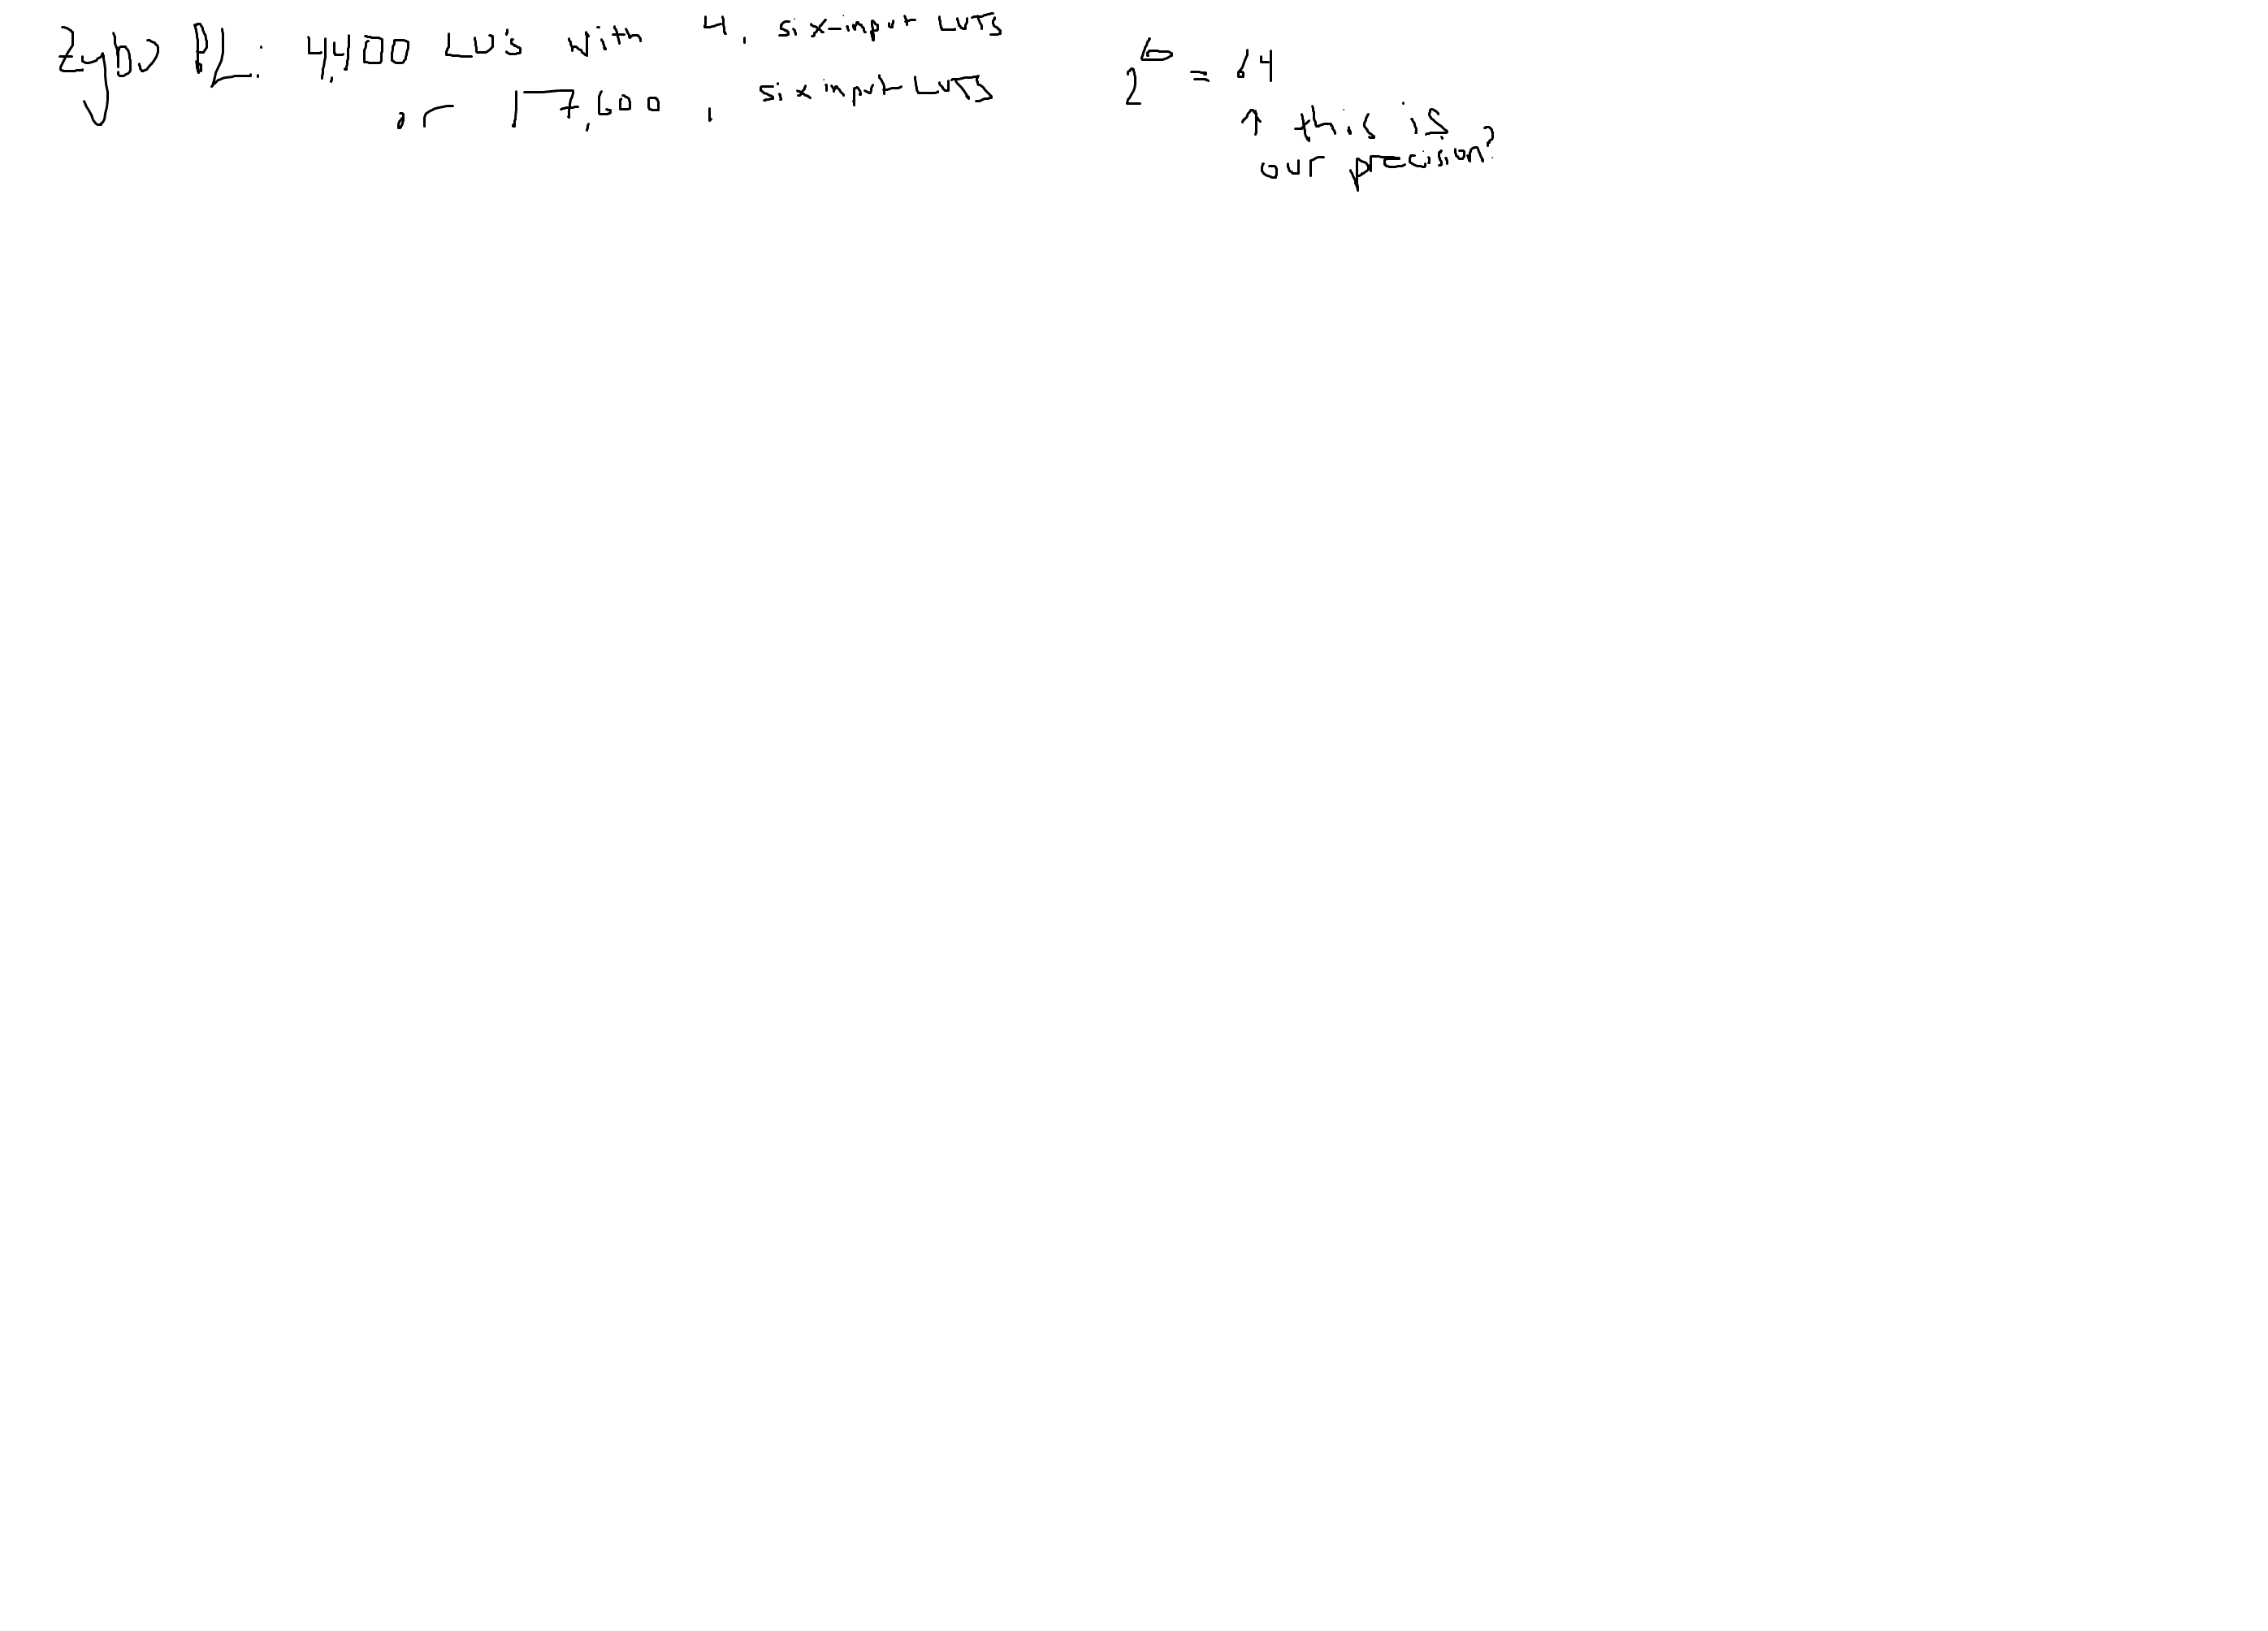 Zybo PL: 4,400 LU's with 4, six-input LUTs
or 17,600, six input LUTs
2^6 = 64
↑ this is
our precision?